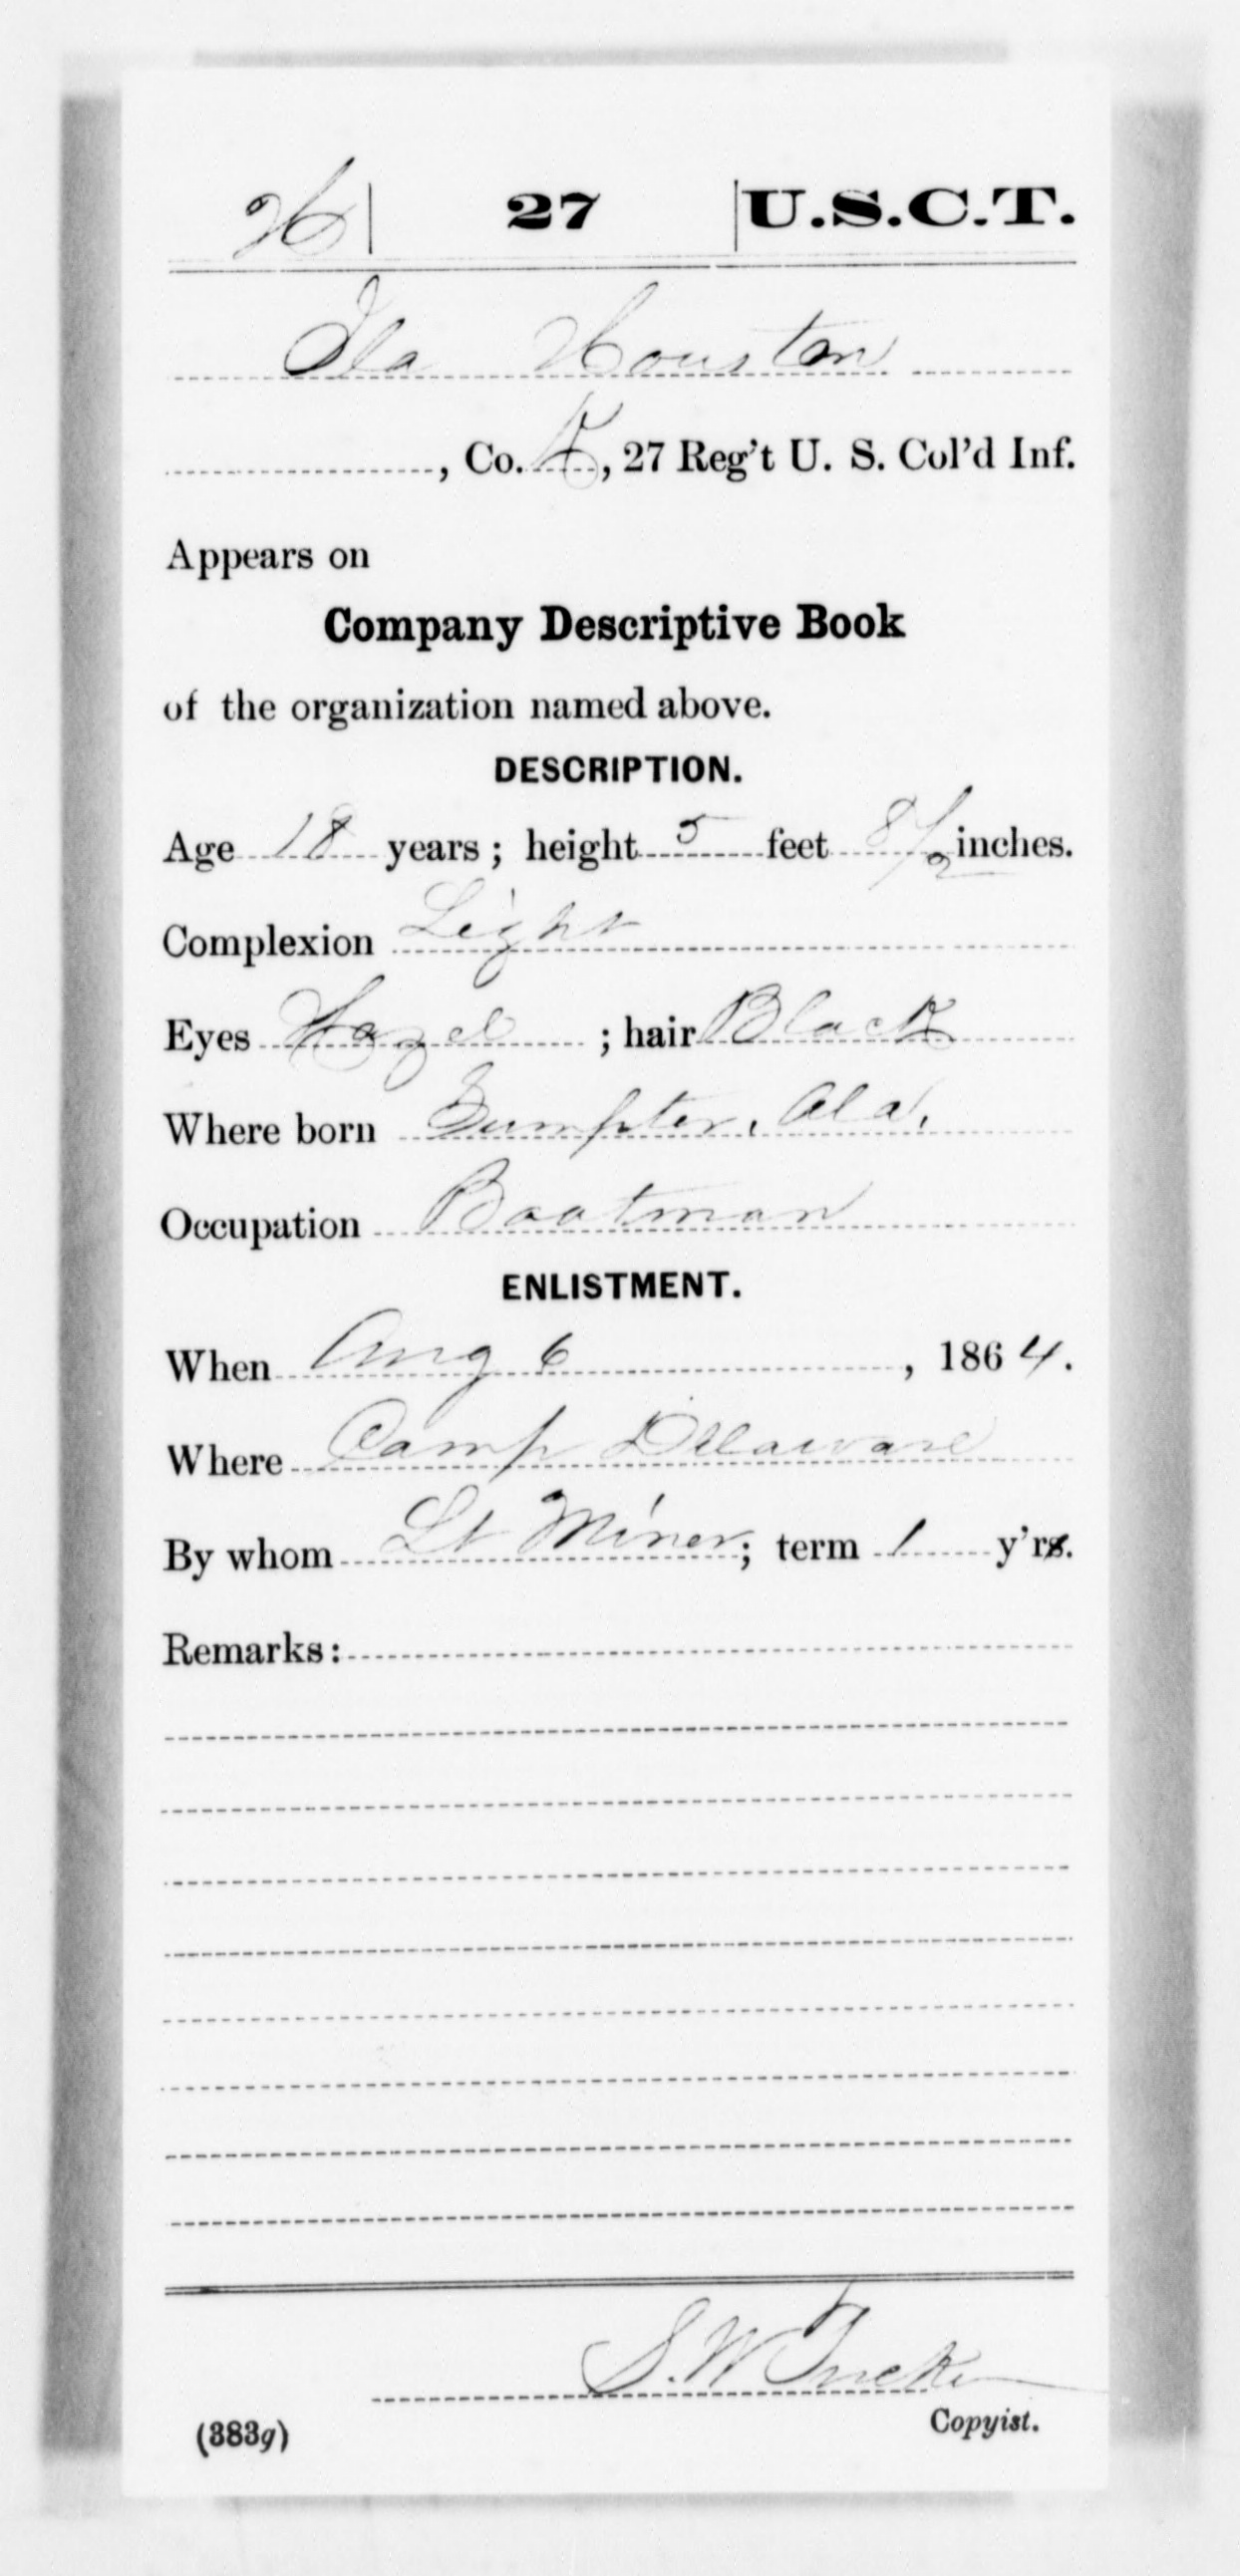 H | 27 | U.S.C.T.
Ila Houston
, Co. K, 27 Reg't U. S. Col'd Inf.
Appears on
Company Descriptive Book
of the organization named above.
DESCRIPTION.
Age 18 years; height 5 feet 8 1/2 inches.
Complexion Light
Eyes Hazel ; hair Black
Where born Sumpter, Ala.
Occupation Boatman
ENLISTMENT.
When Aug 6 , 1864.
Where Camp Delaware
By whom Lt Miner; term 1 y'rs.
Remarks:
S. W. Tucker
(383g) Copyist.